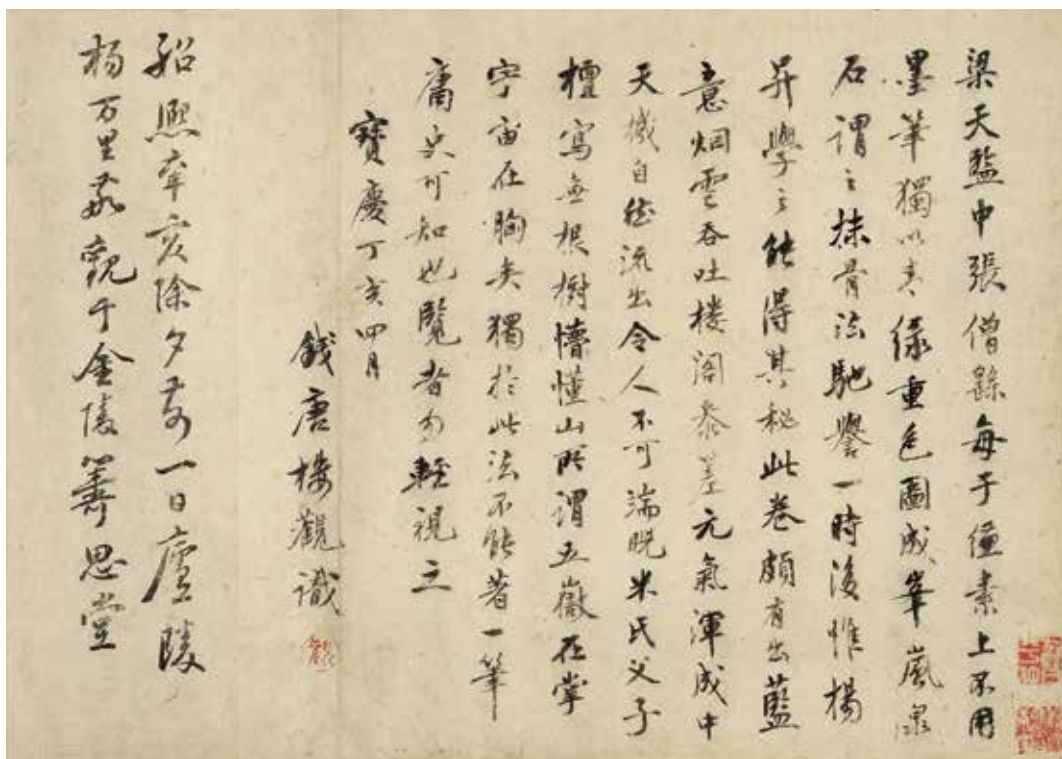 梁天監中張僧繇每于縑素上不用
墨筆獨以青綠重色圖成峯嵐泉
石謂之抹骨法馳譽一時後惟楊
昇學之能得其秘此卷頗有出藍
意烟雲吞吐楼阁叅差元氣渾成中
天機自然流出令人不可端睨米氏父子
檀寫無根樹懵懂山所謂五嶽在掌
宇宙在胸矣獨於此法不能著一筆
庸史可知也覽者勿輕視之
寶慶丁亥四月
錢唐樓觀識
紹熈辛亥除夕前一日廬陵
杨万里敬觀于金陵籌思堂